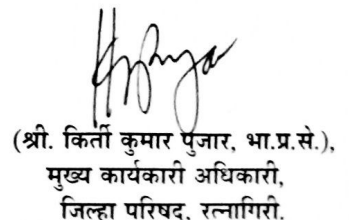 (श्री. किर्ती कुमार पुजार, भा.प्र.से.),
मुख्य कार्यकारी अधिकारी,
जिल्हा परिषद, रत्नागिरी.